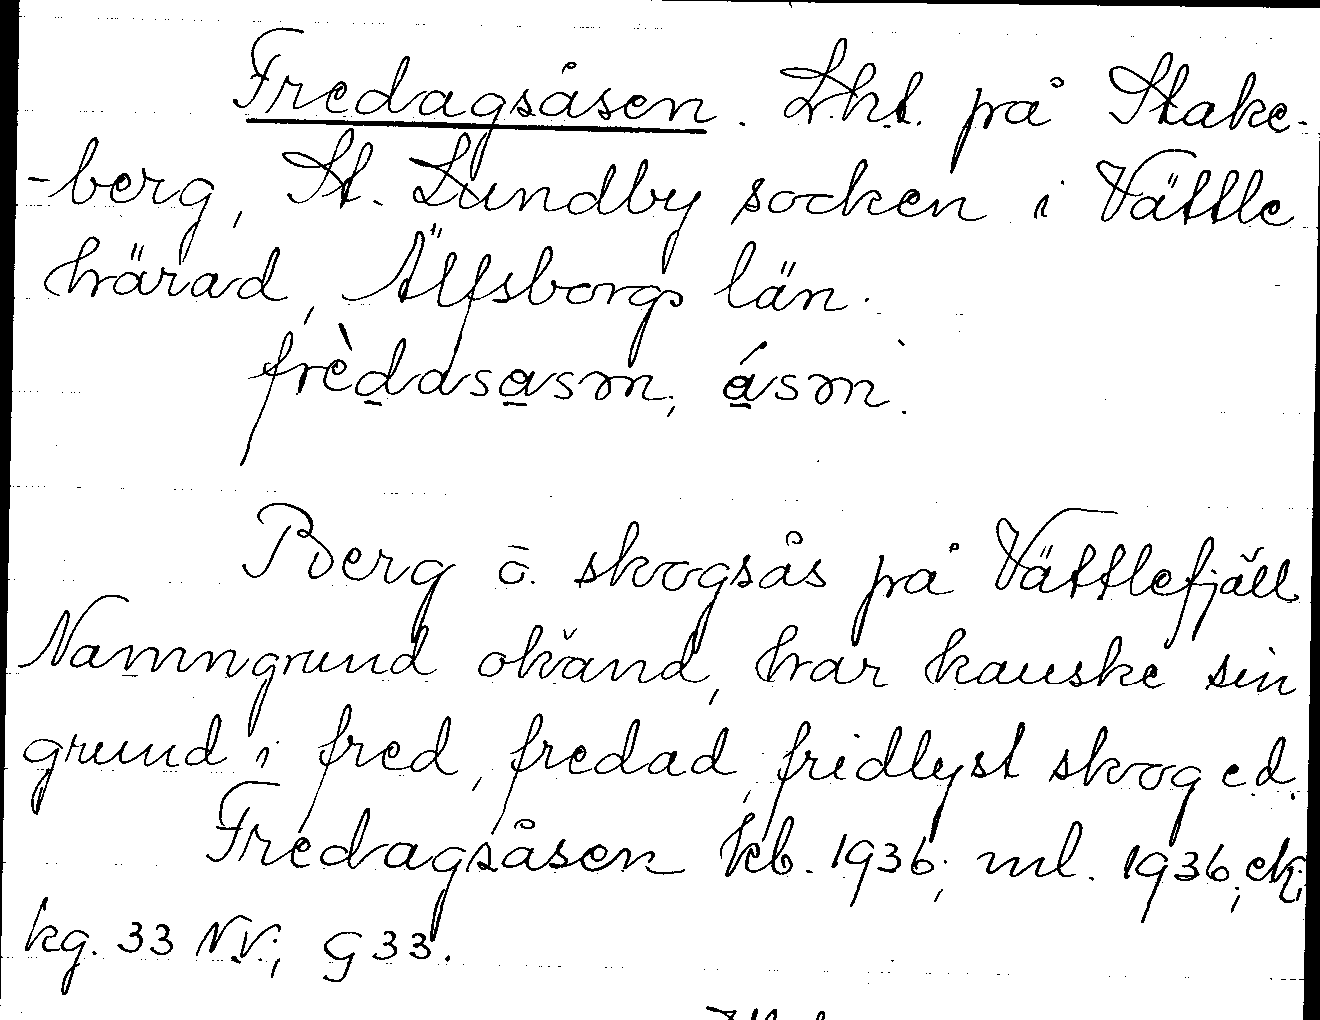 Fredagsåsen. Lht. på Stake-
-berg, St. Lundby socken i Vättle
härad, Älfsborgs län.
frèdasasm, ásm.
Berg o. skogsås på Vättlefjäll
Namngrund okänd, har kanske sin
grund i fred, fredad, fridlyst skog e.d.
Fredagsåsen kb. 1936; ml. 1936; ek.
kg. 33 NV.; G 33.